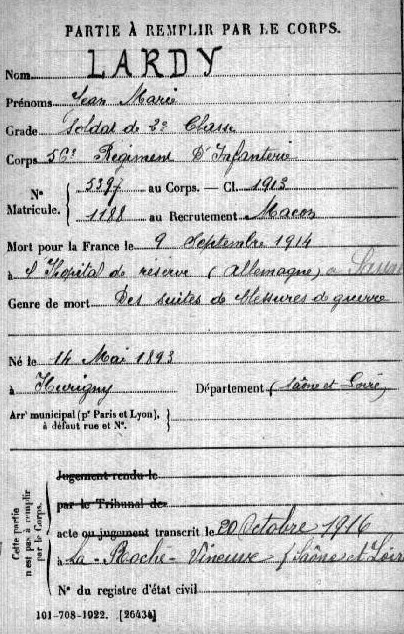 PARTIE À REMPLIR PAR LE CORPS.
Nom LARDY
Prénoms Jean Marie
Grade Soldat de 2e Classe
Corps 56e Régiment d'Infanterie
N° Matricule. { 5397 au Corps. — Cl. 1913
1188 au Recrutement Macon
Mort pour la France le 9 Septembre 1914
à l'Hopital de réserve (Allemagne) a
Genre de mort Des suites de blessures de guerre
Né le 14 Mai 1893
à Hurigny Département (Saône et Loire)
Arrt municipal (pr Paris et Lyon), }
à défaut rue et N°.
Cette partie n'est pas à remplir par le Corps.
Jugement rendu le
par le Tribunal de
acte ou jugement transcrit le 20 Octobre 1916
à La Roche-Vineuse (Saône et Loire
N° du registre d'état civil
101-708-1922. [26434]